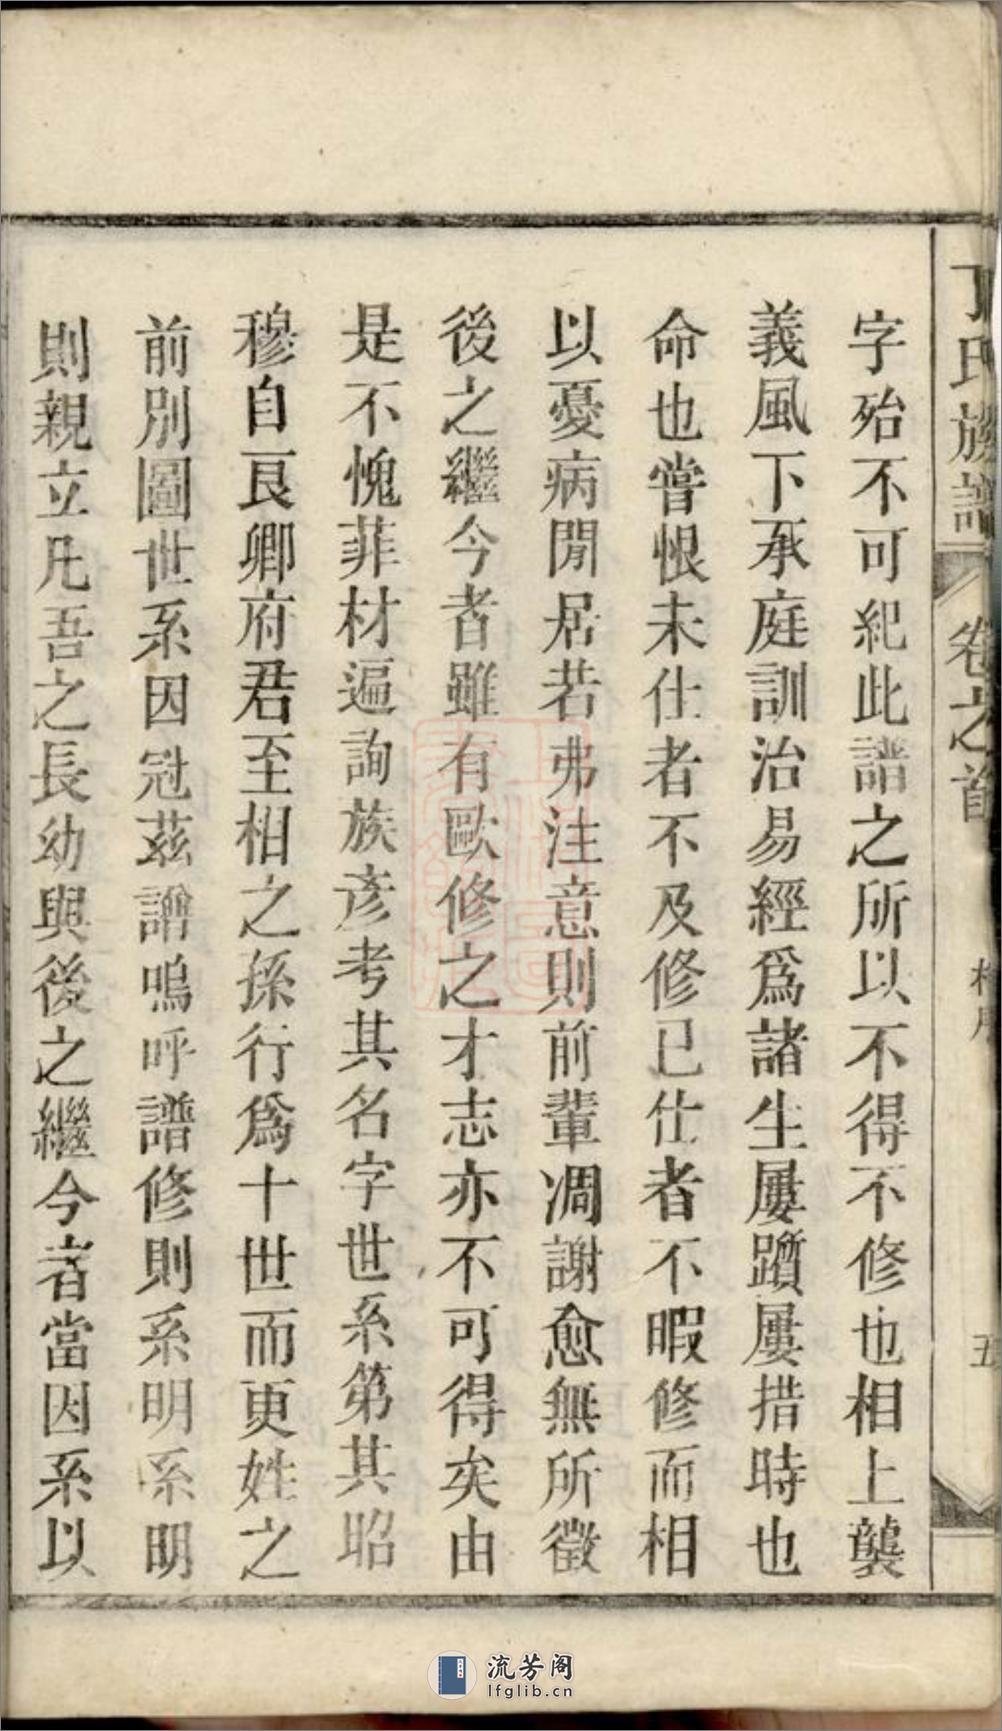 丁氏族譜 卷之首 五
字殆不可紀此譜之所以不得不修也相上襲
義風下承庭訓治易經爲諸生屢躓屢措時也
命也嘗恨未仕者不及修已仕者不暇修而相
以憂病閒居若弗注意則前輩凋謝愈無所徵
後之繼今者雖有歐修之才志亦不可得矣由
是不愧菲材遍詢族彦考其名字世系第其昭
穆自良卿府君至相之孫行爲十世而更姓之
前別圖世系因冠茲譜嗚呼譜修則系明系明
則親立凡吾之長幼與後之繼今者當因系以
流芳阁
lfglib.cn